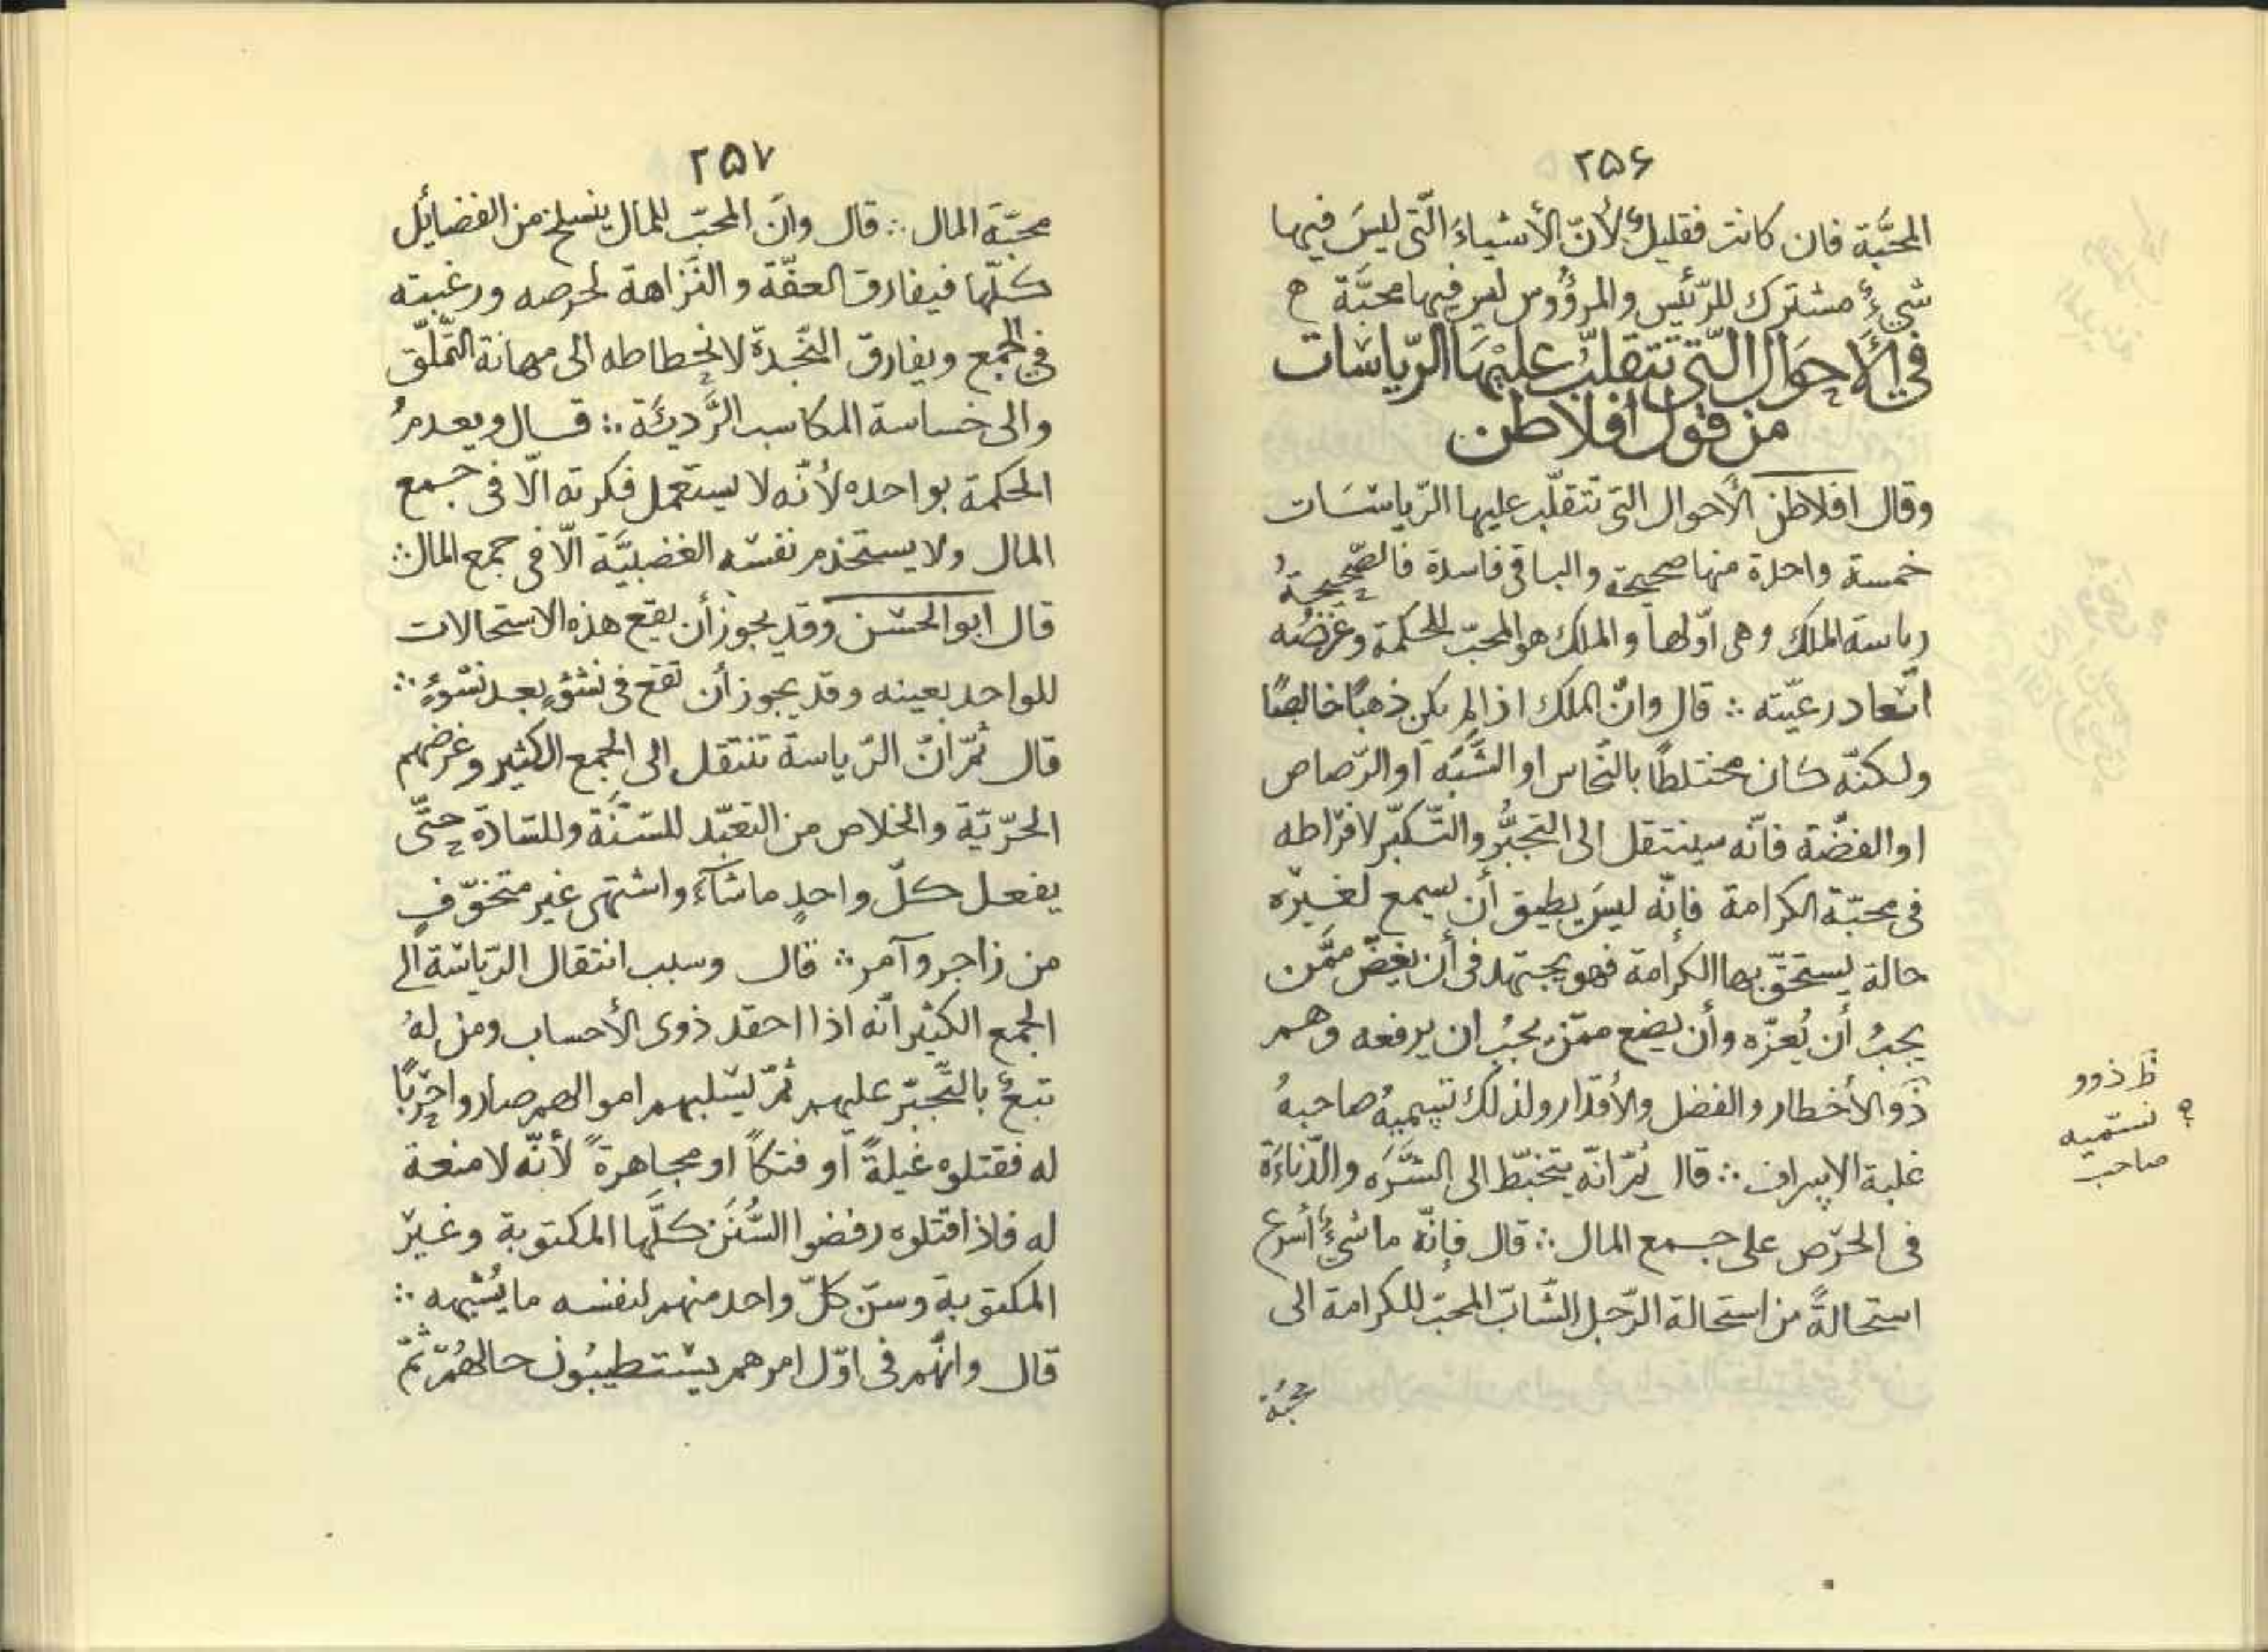 ۲۵۶
المحبَّة فان كانت فقليل ولأنّ الأشياءَ الّتى ليسَ فيها
شىءٌ مشترك للرّئيس والمرؤُوس ليس فيها محبَّة
فى الأحوال الّتى تتقلّب عليهَا الرّياسَات
من قول أفلاطن
وقال افلاطن الأحوال التى تتقلّب عليها الرّياسَات
خمسة واحدة منها صحيحة والباقى فاسدة فالصّحيحةُ
رياسة الملك وهى اوّلها والملك هو المحبّ للحكمة وغرضُه
اسْعاد رعيّته ∴ قال وانّ الملك اذا لم يكن ذهبًا خالصًا
ولكنّه كان مختلطًا بالنّحاس او الشَّبَه أو الرّصاص
او الفضّة فانّه سينتقل الى التجبُّر والتّكبّر لافراطه
فى محبّة الكرامة فإنّه ليسَ يطيق أن يسمع لغيره
حالة يستحقّ بها الكرامة فهو يجتهد فى أن يغضّ ممَّن
يجبُ أن يُعزّه وأن يضع ممّن يجبُ ان يرفعه وهم
ذَوالأخطار والفضل والأقدار ولذلك تسميهُ صاحبهُ
غلبة الإسراف ∴ قال ثمّ انّه يتخبّط الى الشَّرَه والدّناءَة
فى الحرْص على جمع المال ∴ قال فإنّه ما شىءٌ أسرع
استحالةً من استحالة الرّجل الشّابّ المحبّ للكرامة الى
محبّة
ظ ذوو
نسمّيه
صاحب
۲۵۷
محبّة المال ∴ قال وانّ المحبّ للمال ينسلخ من الفضائل
كلّها فيفارق العفّة والنَّزاهة لحرصه ورغبته
فى الجمع ويفارق النّجدة لانحطاطه الى مهانة التّملّق
والى خساسة المكاسب الرَّديئَة ∴ قال ويعدمُ
الحكمة بواحده لأنّه لا يستعمل فكرته الّا فى جمع
المال ولا يستخدم نفسَه الغضبيَّة الّا فى جمع المال ∴
قال ابو الحسَن وقد يجوز أن يقع هذه الاستحالات
للواحد بعينه وقد يجوز أن تقع فى نشؤٍ بعد نشوءٍ ∴
قال ثمّ انّ الرّياسة تنتقل الى الجمع الكثير وغرضهم
الحرّيّة والخلاص من التعبّد للسّنَّة وللسّادة حتَّى
يفعل كلّ واحدٍ ما شآءَ واشتهى غير متخوّفٍ
من زاجر وآمر ∴ قال وسبب انتقال الرّياسَة الى
الجمع الكثير انّه اذا احقد ذوى الأحساب ومن لهُ
تبعٌ بالتَّجبّر عليهم ثمّ يسْلبهم اموالهم صاروا حرْبًا
له فقتلوه غيلةً أو فتكًا او مجاهرةً لأنّه لا منعة
له فاذا قتلوه رفضوا السُّنَن كلَّها المكتوبة وغير
المكتوبة وسنّ كلّ واحد منهم لنفسه ما يُشبهه ∴
قال وانّهم فى اوّل امرهم يسْتطيبُون حالهُم ثمّ